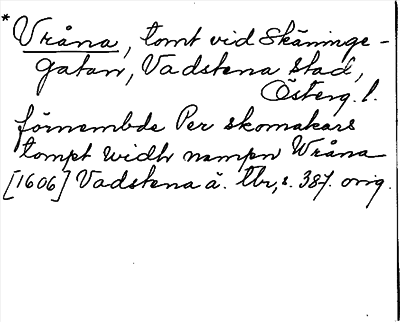 * Vråna, tomt vid Skäninge-
gatan, Vadstena stad,
Österg. l.
förnembde Per skomakars
tompt widh nampn Wråna
[1606] Vadstena ä. tbr, s. 387. orig.